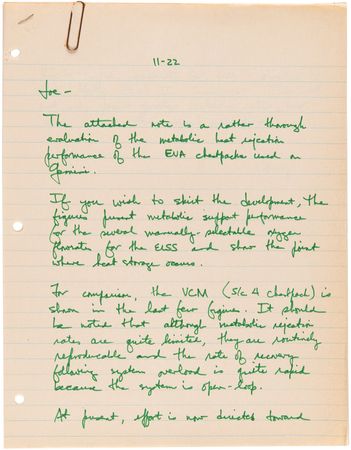 11-22
Joe -
The attached note is a rather thorough
evaluation of the metabolic heat rejection
performance of the EVA chestpacks used on
Gemini.
If you wish to skirt the development, the
figures present metabolic support performance
for the several manually-selectable oxygen
flowrates for the ELSS and show the point
where heat storage occurs.
For comparison, the VCM (S/C 4 chestpack) is
shown in the last few figures. It should
be noted that although metabolic rejection
rates are quite limited, they are routinely
reproducable and the rate of recovery
following system overload is quite rapid
because the system is open-loop.
At present, effort is now directed toward